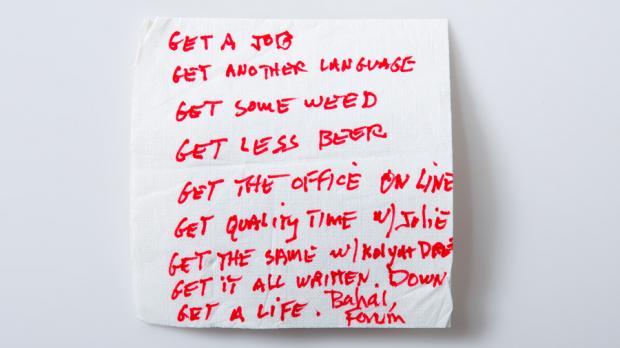 GET A JOB
GET ANOTHER LANGUAGE
GET SOME WEED
GET LESS BEER
GET THE OFFICE ON LINE
GET QUALITY TIME W/ JOLIE
GET THE SAME W/
GET IT ALL WRITTEN. DOWN
GET A LIFE. Bahal,
Forum